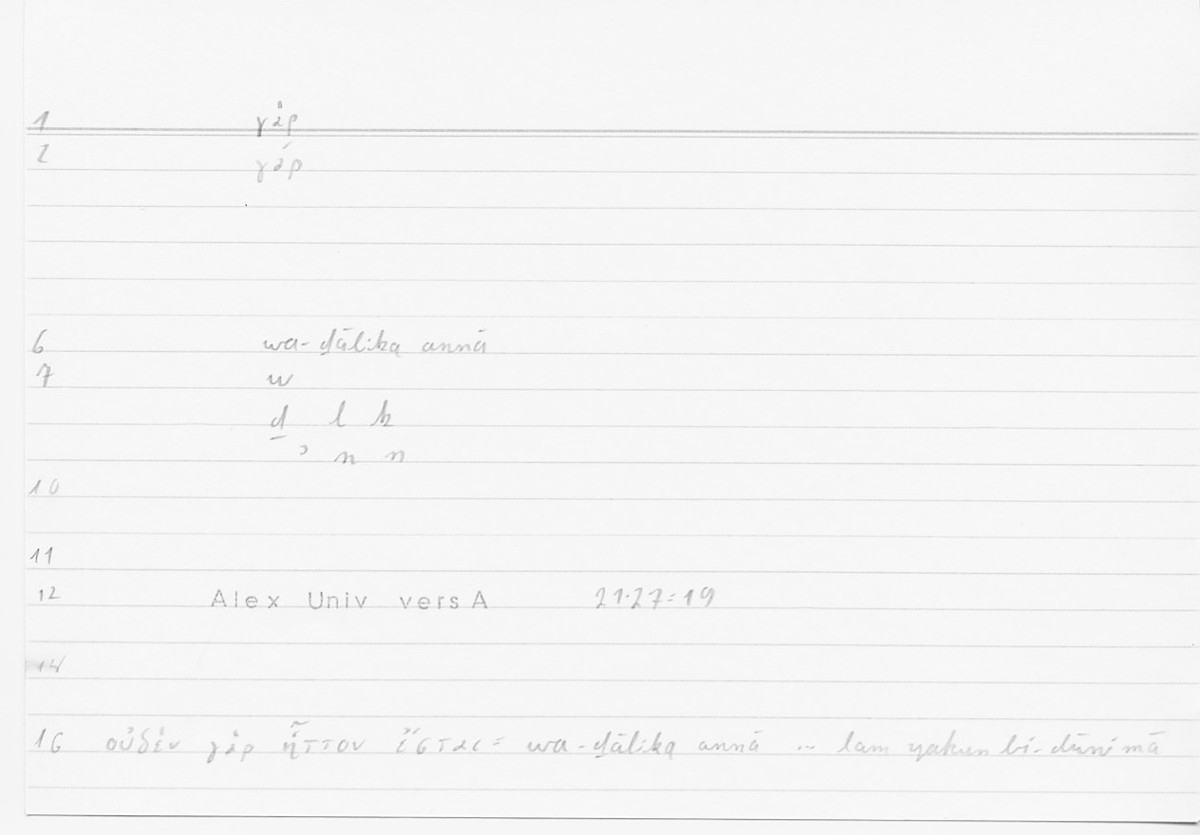 1 γὰρ
2 γάρ
6 wa-ḏālika annā
7 w
ḏ l k
ʾ n n
10
11
12 Alex Univ vers A 21.27=19
14
16 οὐδὲν γὰρ ἧττον ἔσται = wa-ḏālika annā ... lam yakun bi-dūni mā